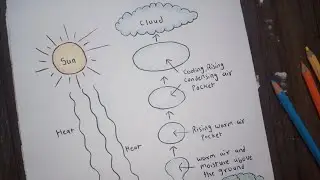 Cloud
Sun
Cooling Rising
Condensing air
Pocket
Heat
Rising warm air
Pocket
Heat
warm air and
moisture above
the ground